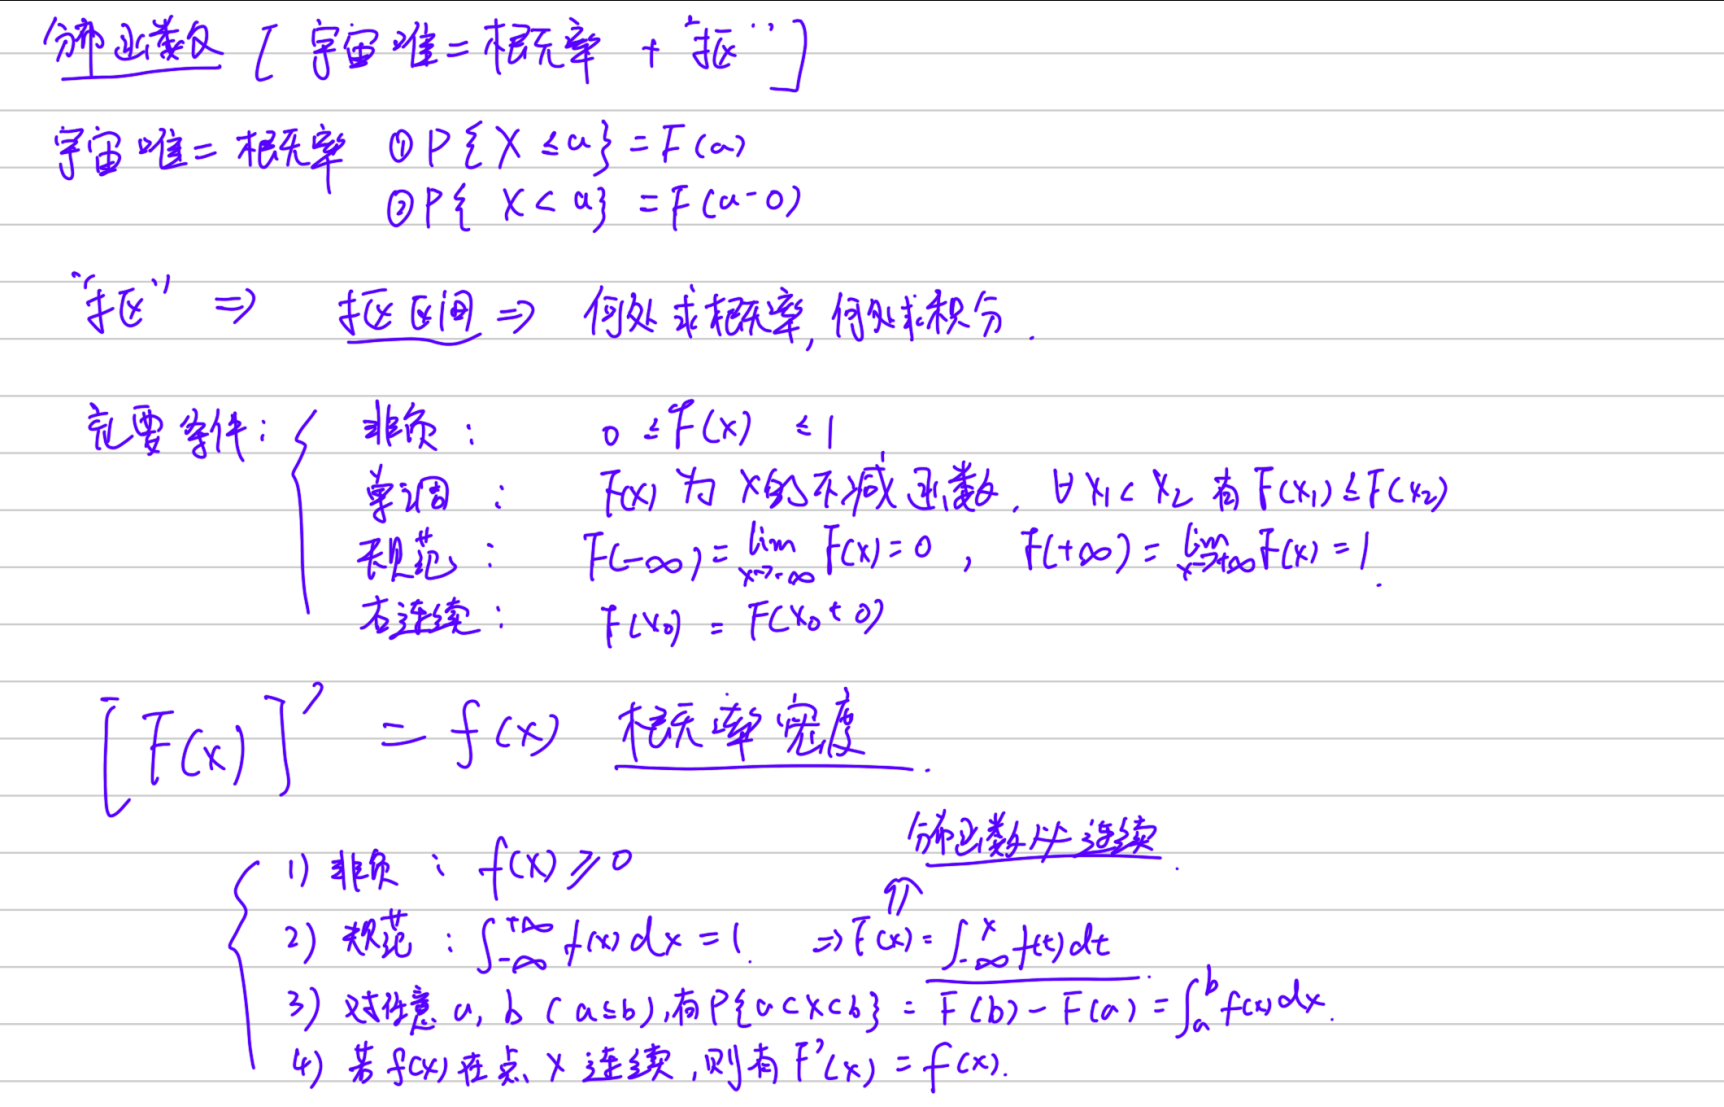 分布函数 [ 宇宙唯二概率 + “抠” ]
宇宙唯二概率 ① P{X ≤ a} = F(a)
② P{X < a} = F(a-0)
“抠” ⇒ 抠区间 ⇒ 何处求概率, 何处求积分.
充要条件: { 非负: 0 ≤ F(x) ≤ 1
单调: F(x) 为 x的不减函数, ∀ x₁ < x₂ 有 F(x₁) ≤ F(x₂)
规范: F(-∞) = lim x→-∞ F(x) = 0, F(+∞) = lim x→+∞ F(x) = 1.
右连续: F(x₀) = F(x₀+0)
[F(x)]' = f(x) 概率密度.
分布函数必连续.
⇑
{ 1) 非负: f(x) ≥ 0
2) 规范: ∫_{-∞}^{+∞} f(x)dx = 1. ⇒ F(x) = ∫_{-∞}^{x} f(t)dt.
3) 对任意 a, b (a≤b), 有 P{a<X<b} = F(b) - F(a) = ∫_a^b f(x)dx.
4) 若 f(x) 在点 x 连续, 则有 F'(x) = f(x).